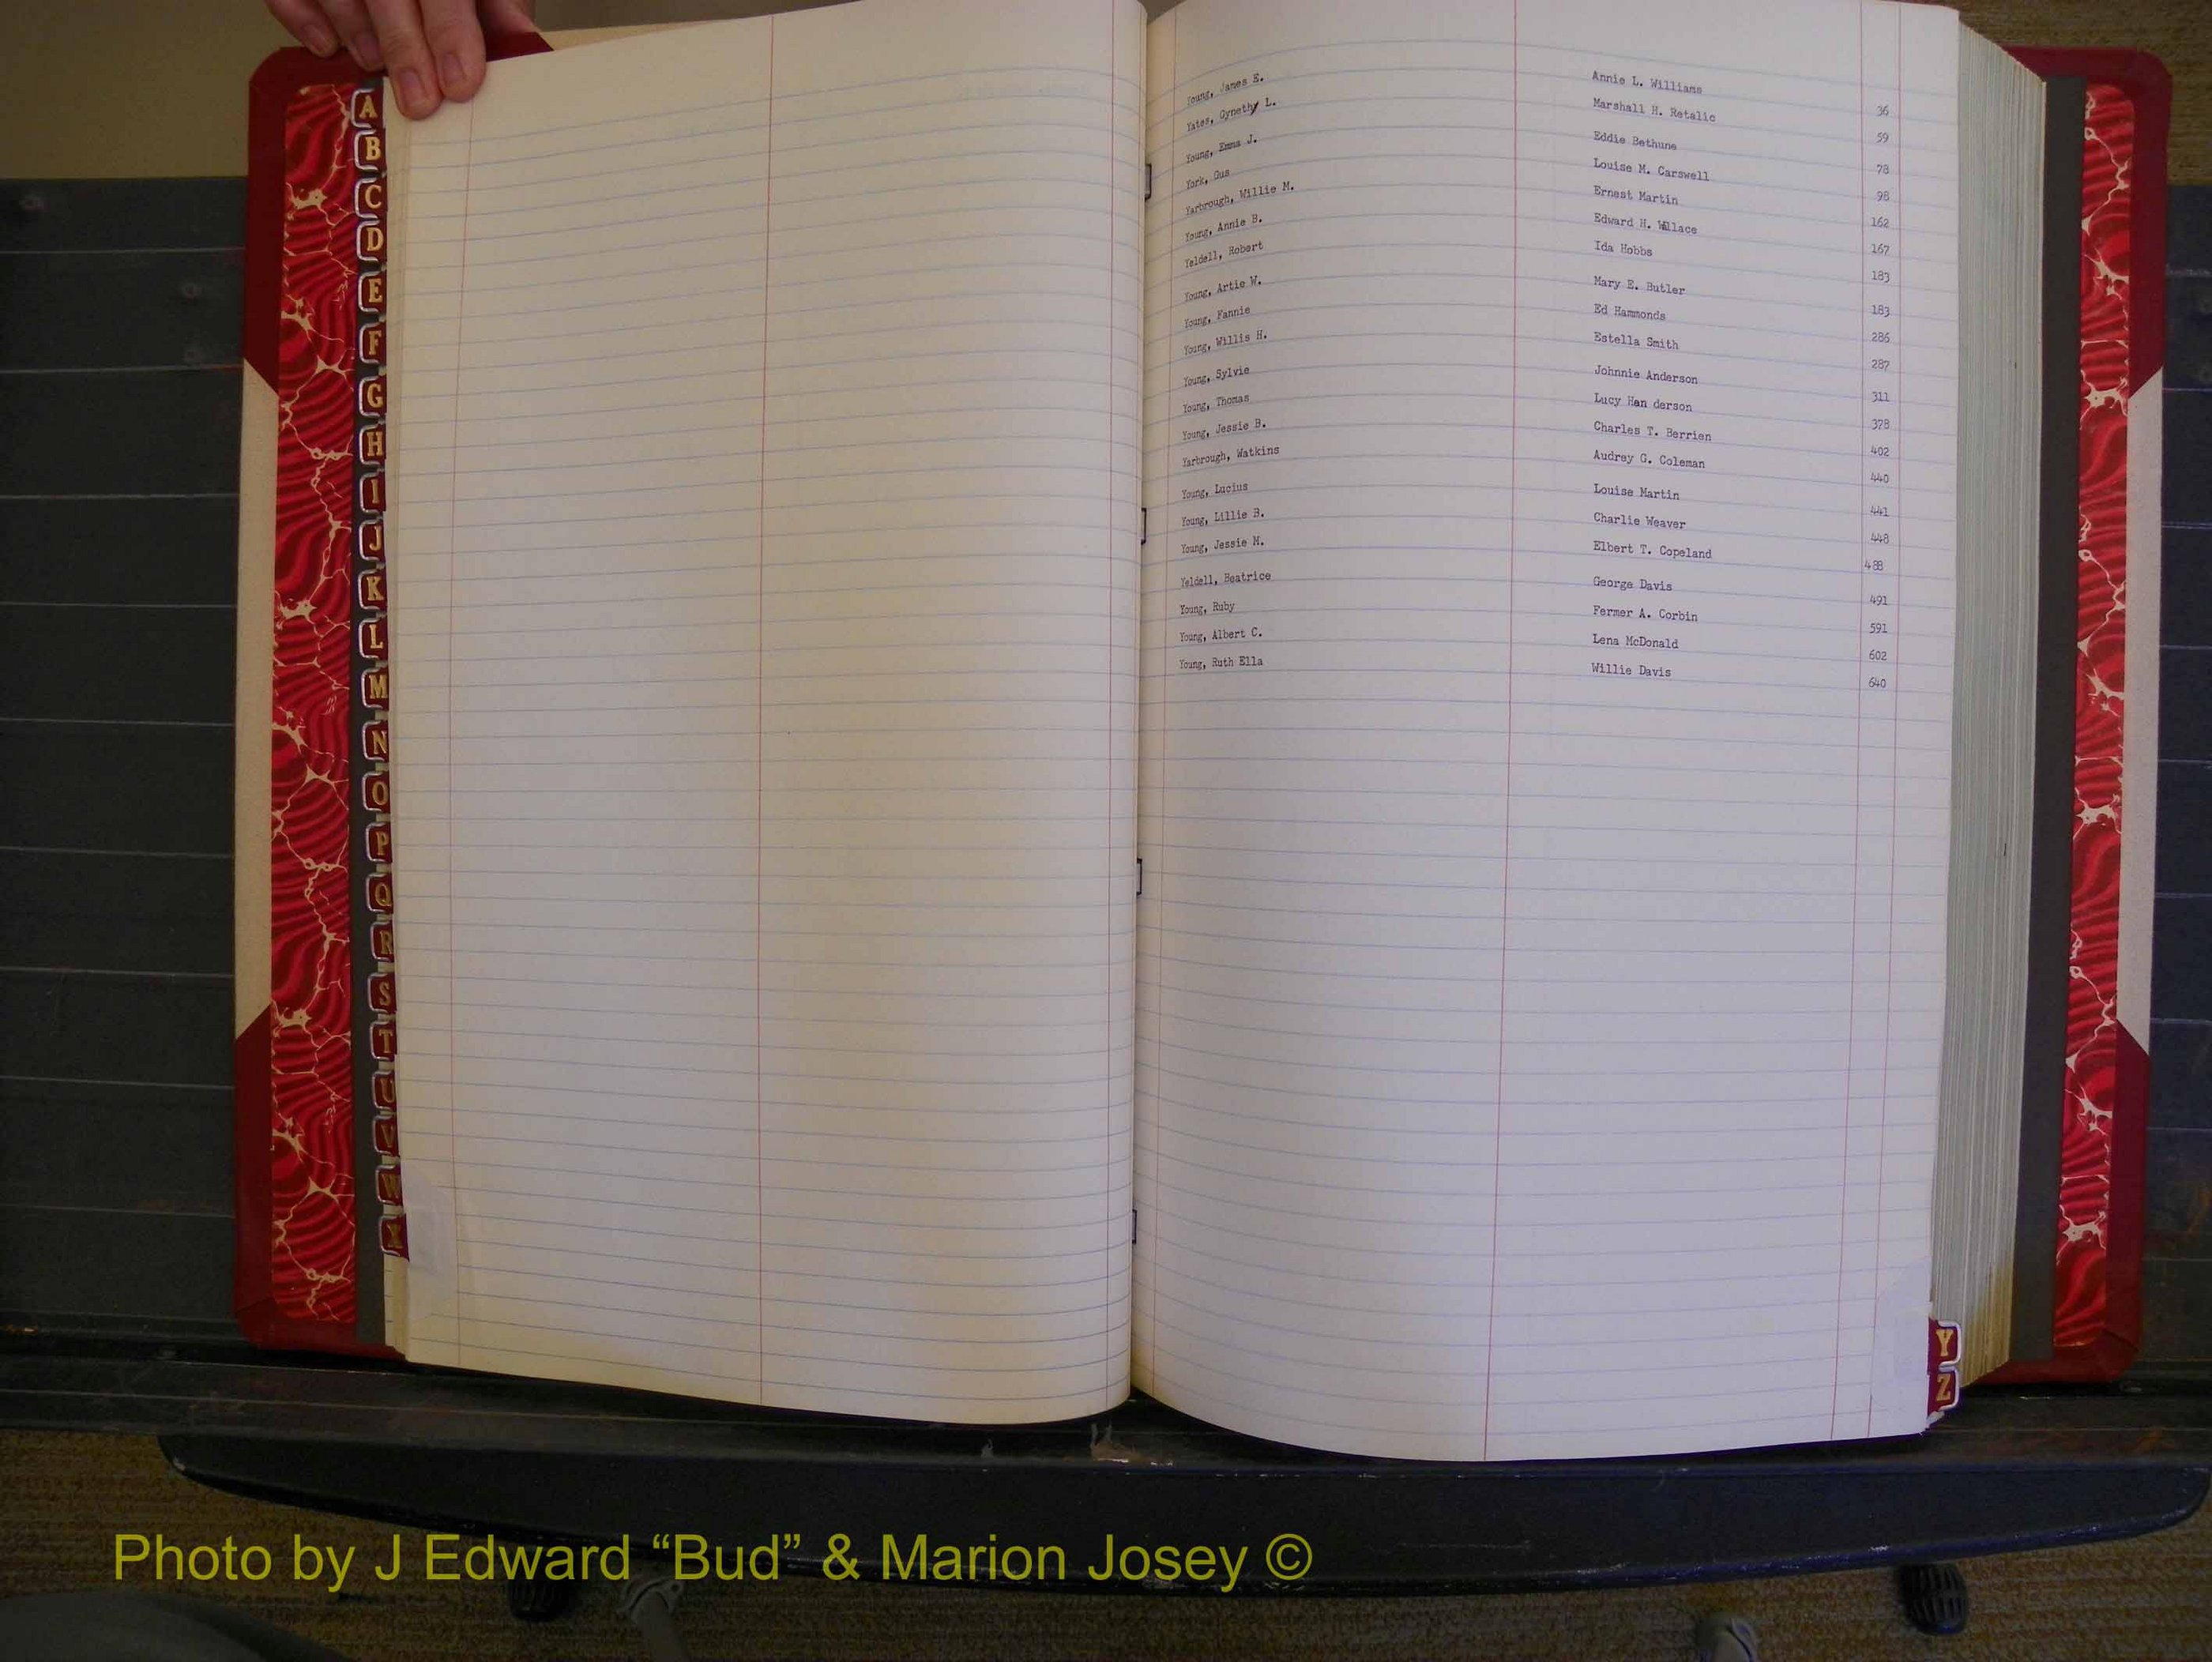 A
B
C
D
E
F
G
H
I
J
K
L
M
N
O
P
Q
R
S
T
U
V
W
X
Young, James E. Annie L. Williams 36
Yates, Gynethy L. Marshall H. Retalic 59
Young, Emma J. Eddie Bethune 78
York, Gus Louise M. Carswell 98
Yarbrough, Willie M. Ernest Martin 162
Young, Annie B. Edward H. Wallace 167
Yeldell, Robert Ida Hobbs 183
Young, Artie W. Mary E. Butler 183
Young, Fannie Ed Hammonds 286
Young, Willis H. Estella Smith 287
Young, Sylvie Johnnie Anderson 311
Young, Thomas Lucy Han derson 378
Young, Jessie B. Charles T. Berrien 402
Yarbrough, Watkins Audrey G. Coleman 440
Young, Lucius Louise Martin 441
Young, Lillie B. Charlie Weaver 448
Young, Jessie M. Elbert T. Copeland 488
Yeldell, Beatrice George Davis 491
Young, Ruby Fermer A. Corbin 591
Young, Albert C. Lena McDonald 602
Young, Ruth Ella Willie Davis 640
Y
Z
Photo by J Edward “Bud” & Marion Josey ©